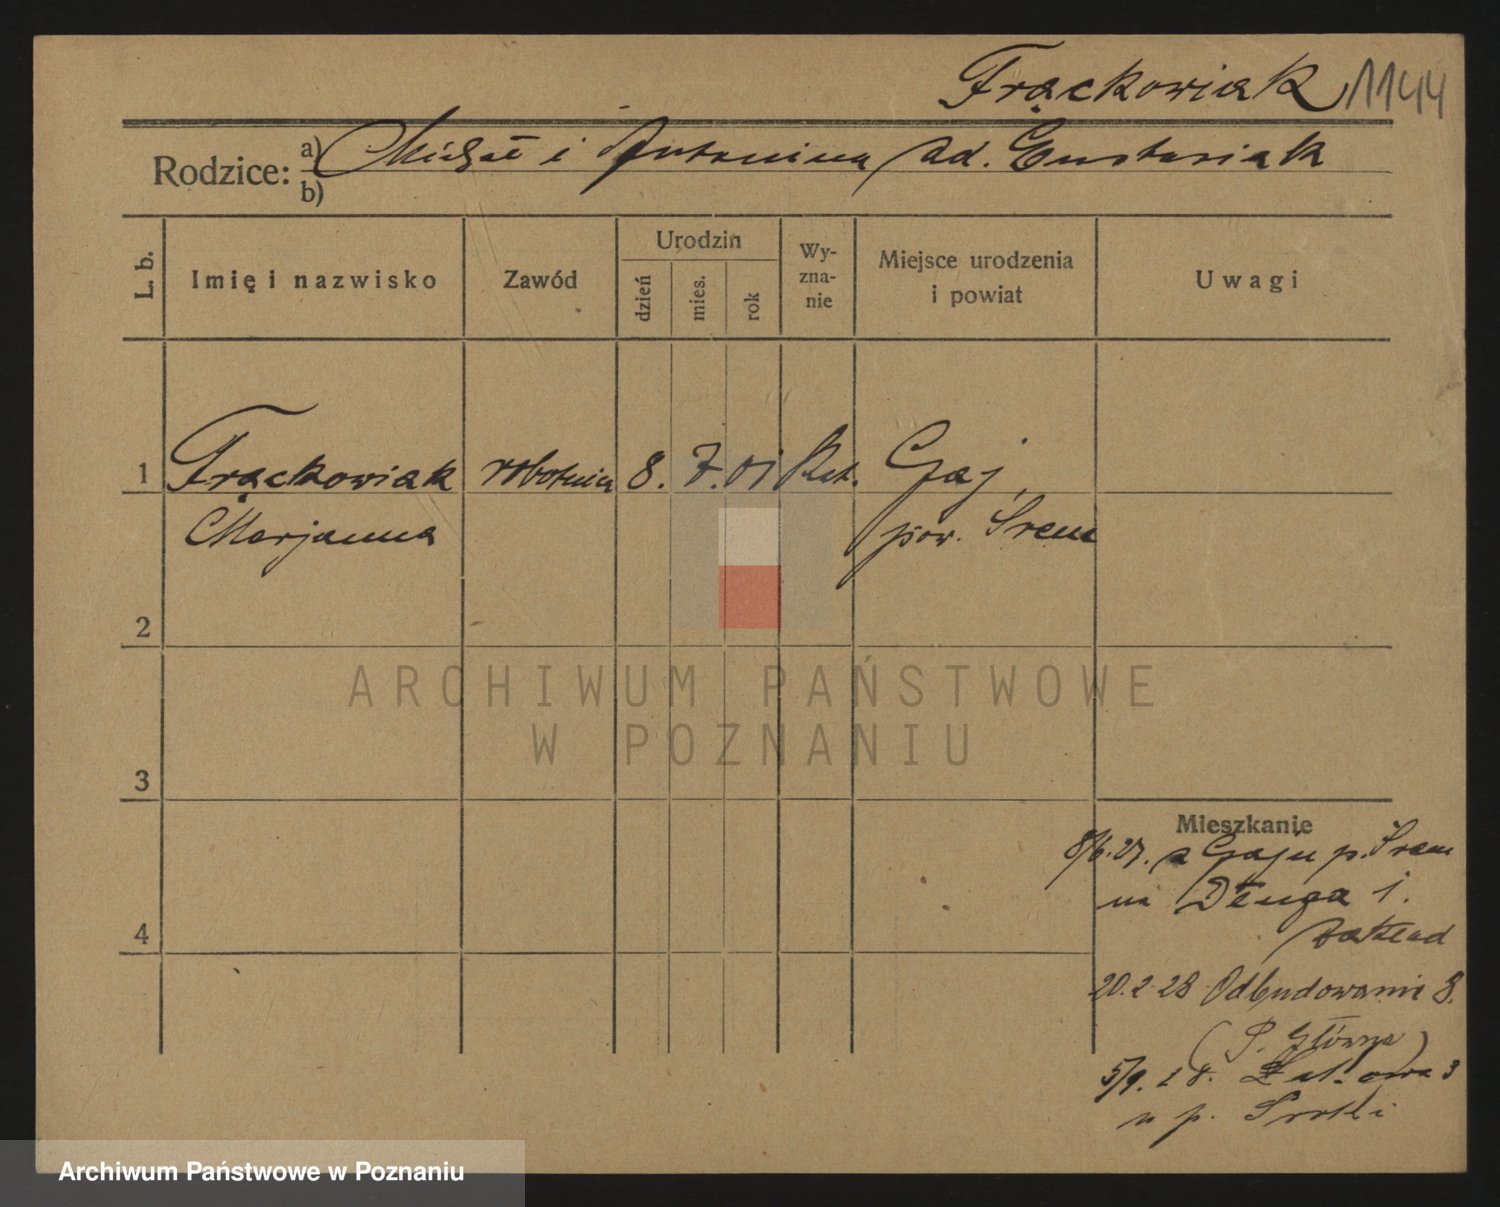 Frąckowiak 1144
Rodzice: a) Michał i Antonina
b)
L. b.
Imię i nazwisko
Zawód
Urodzin
dzień
mies.
rok
Wy-
zna-
nie
Miejsce urodzenia
i powiat
Uwagi
1 Frąckowiak robotnica 8. 7. 01 Kat. Gaj,
Marjanna pow. Śrem
2
3
4
Mieszkanie
8/6.27. z Gaju p. Śrem
na Długa 1.
zakład
20.2.28 Odbudowanie 8.
(P. Główna)
5/9.28. 3
u p.
ARCHIWUM PAŃSTWOWE
W POZNANIU
Archiwum Państwowe w Poznaniu